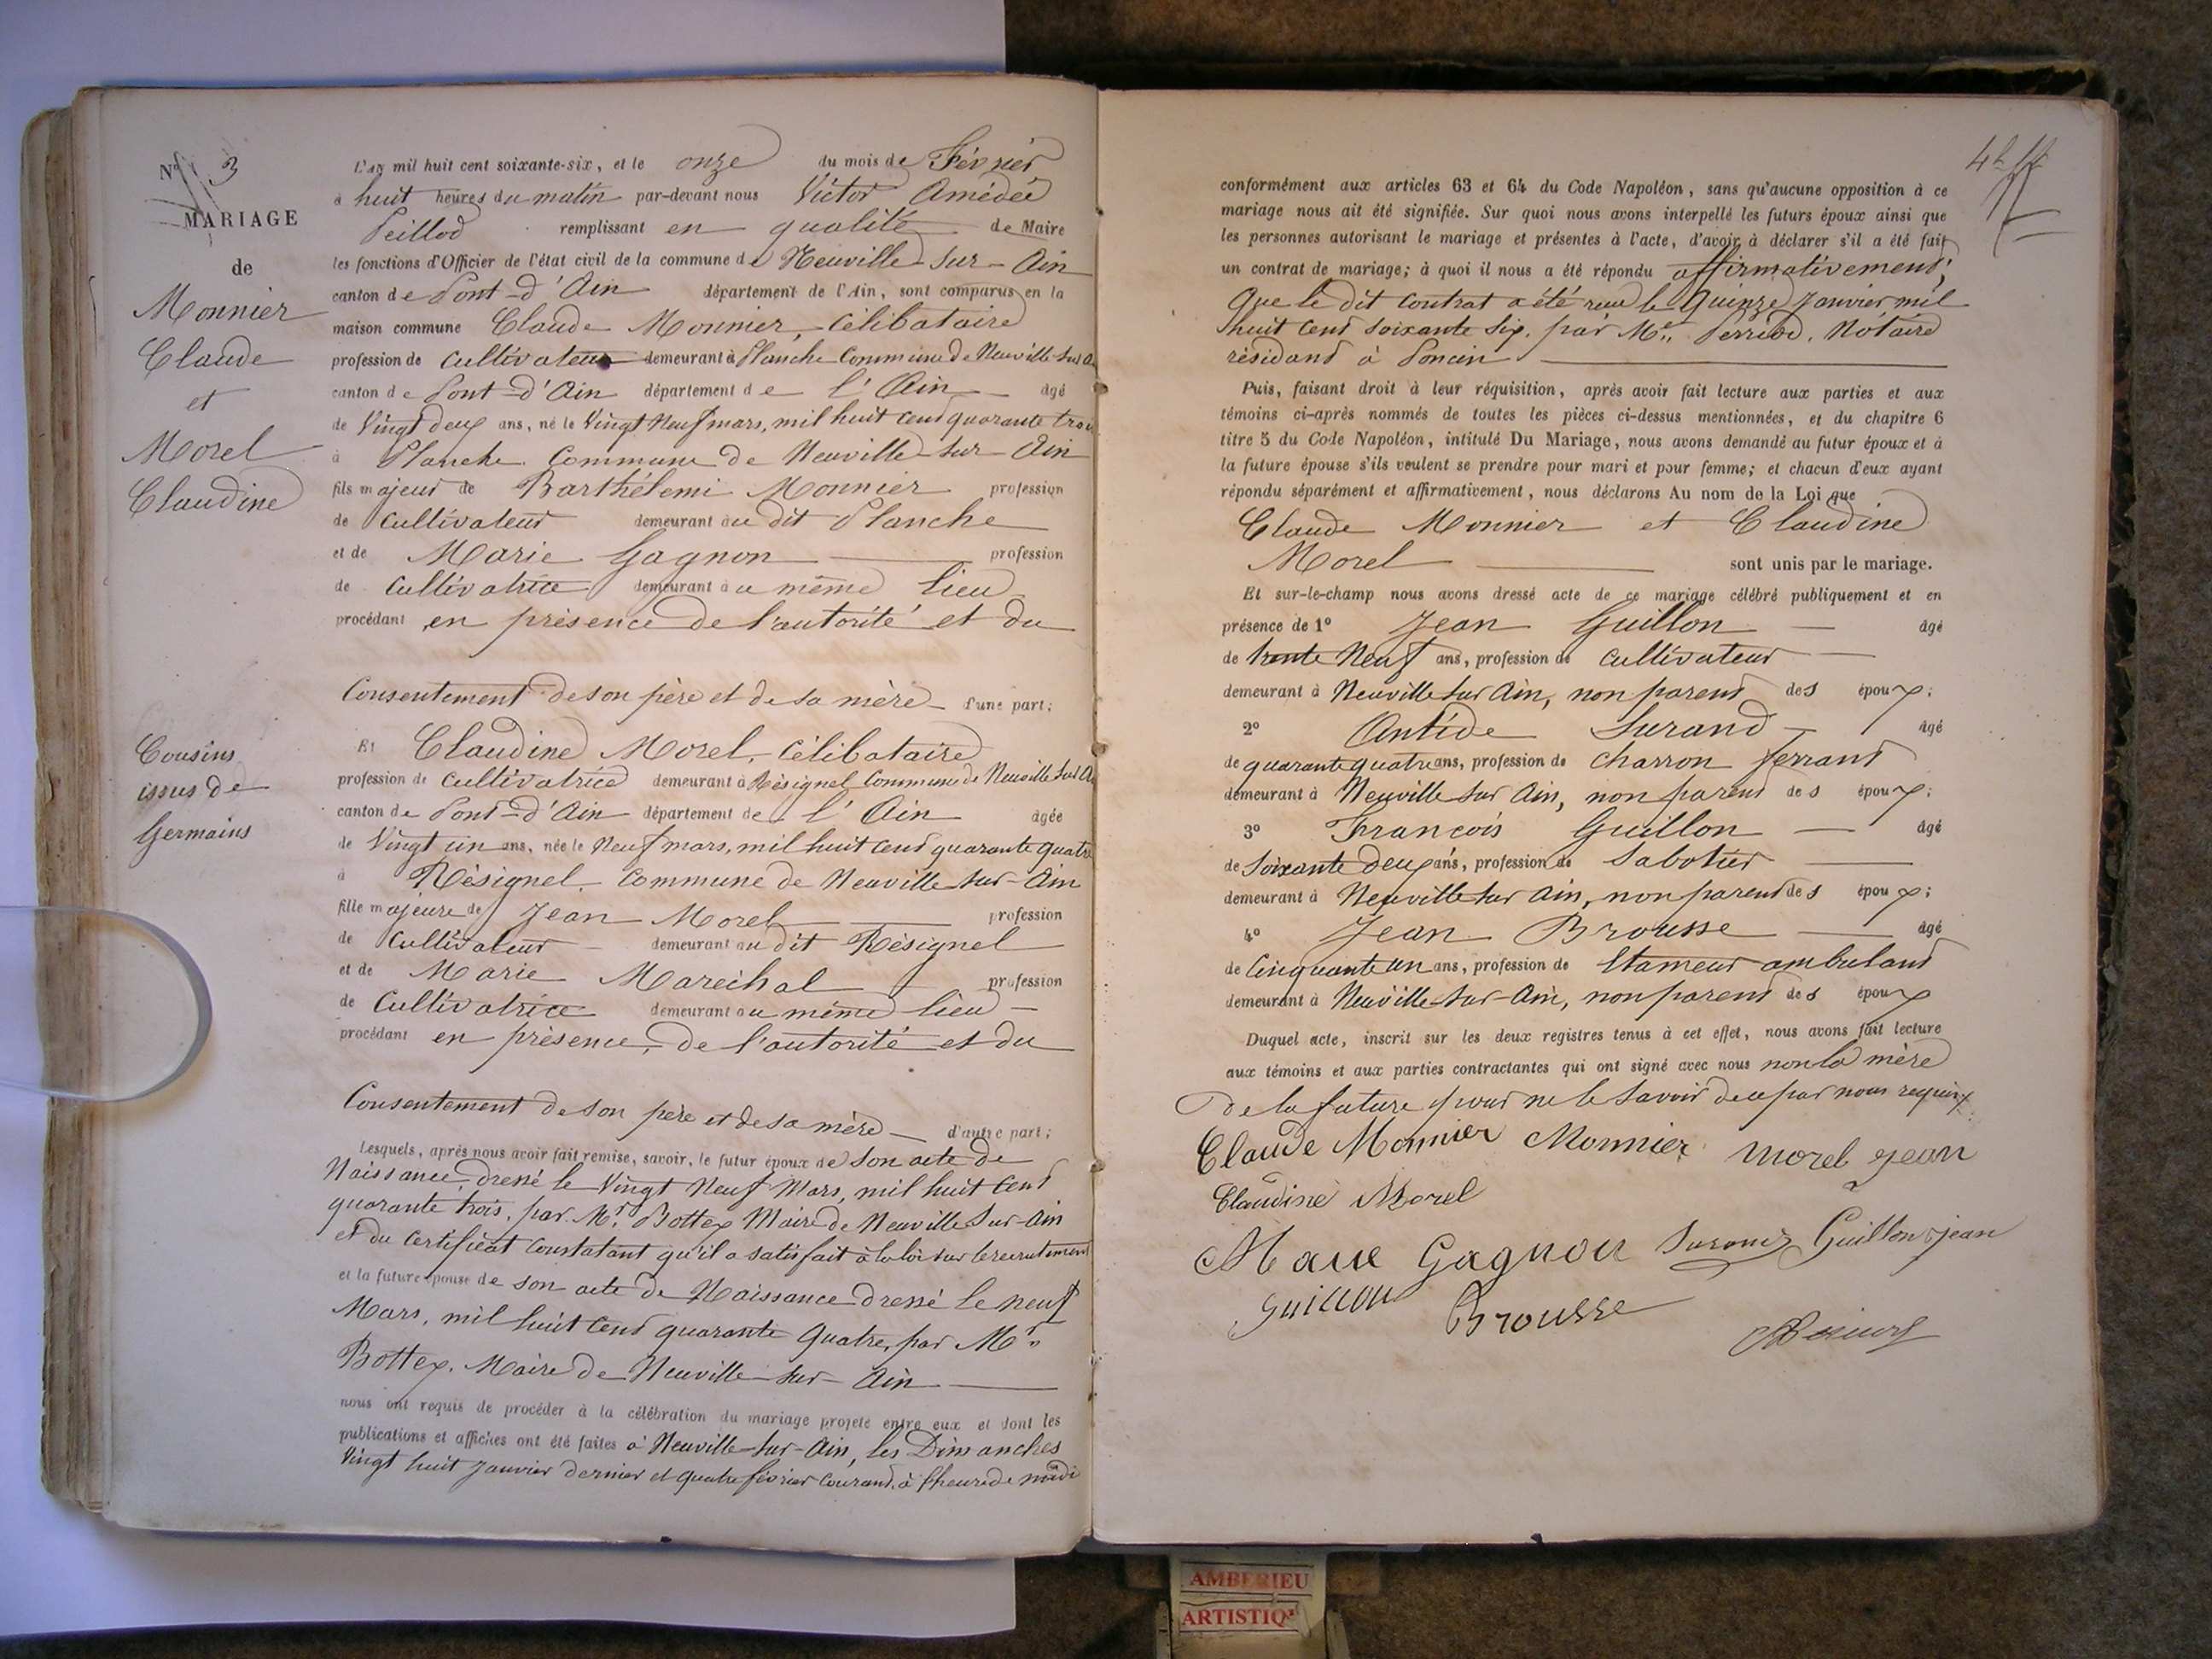 N° 3
MARIAGE
de
Monnier
Claude
et
Morel
Claudine
Cousins
issus de
Germains
L'an mil huit cent soixante-six, et le onze du mois de Février
à huit heures du matin par-devant nous Victor Amédée
Peillod remplissant en qualité de Maire
les fonctions d'Officier de l'état civil de la commune de Neuville-sur-Ain
canton de Pont-d'Ain département de l'Ain, sont comparus en la
maison commune Claude Monnier, Célibataire
profession de Cultivateur demeurant à Planche Commune de Neuville sur
canton de Pont-d'Ain département de l'Ain âgé
de Vingt deux ans, né le Vingt Neuf mars, mil huit cent quarante trois
à Planche Commune de Neuville-sur-Ain
fils majeur de Barthélemi Monnier profession
de Cultivateur demeurant au dit Planche
et de Marie Gagnon profession
de Cultivatrice demeurant au même lieu
procédant en présence de l'autorité et du
Consentement de son père et de sa mère d'une part;
Et Claudine Morel, Célibataire
profession de Cultivatrice demeurant à Résignel Commune de Neuville sur
canton de Pont-d'Ain département de l'Ain âgée
de Vingt un ans, née le Neuf mars, mil huit cent quarante quatre
à Résignel. Commune de Neuville sur-Ain
fille majeure de Jean Morel profession
de Cultivateur demeurant au dit Résignel
et de Marie Maréchal profession
de Cultivatrice demeurant au même lieu
procédant en présence, de l'autorité et du
Consentement de son père et de sa mère d'autre part;
Lesquels, après nous avoir fait remise, savoir, le futur époux de Son acte de
Naissance, dressé le Vingt Neuf Mars, mil huit Cent
quarante trois, par Mr. Bottex Maire de Neuville Sur-Ain
et du Certificat Constatant qu'il a satisfait à la loi sur le recrutement
et la future épouse de son acte de Naissance dressé le neuf
Mars, mil huit Cent quarante Quatre, par Mr.
Bottex. Maire de Neuville-sur-Ain
nous ont requis de procéder à la célébration du mariage projeté entre eux et dont les
publications et affiches ont été faites à Neuville-sur-Ain, les Dimanches
Vingt huit Janvier dernier et quatre février Courant, à l'heure de midi
conformément aux articles 63 et 64 du Code Napoléon, sans qu'aucune opposition à ce
mariage nous ait été signifiée. Sur quoi nous avons interpellé les futurs époux ainsi que
les personnes autorisant le mariage et présentes à l'acte, d'avoir à déclarer s'il a été fait
un contrat de mariage; à quoi il nous a été répondu affirmativement,
Que le dit Contrat a été reçu le Quinze Janvier mil
huit Cent Soixante Six, par Me. Perrod, Notaire
résidant à Poncin
Puis, faisant droit à leur réquisition, après avoir fait lecture aux parties et aux
témoins ci-après nommés de toutes les pièces ci-dessus mentionnées, et du chapitre 6
titre 5 du Code Napoléon, intitulé Du Mariage, nous avons demandé au futur époux et à
la future épouse s'ils veulent se prendre pour mari et pour femme; et chacun d'eux ayant
répondu séparément et affirmativement, nous déclarons Au nom de la Loi que
Claude Monnier et Claudine
Morel sont unis par le mariage.
Et sur-le-champ nous avons dressé acte de ce mariage célébré publiquement et en
présence de 1° Jean Guillon âgé
de trente Neuf ans, profession de Cultivateur
demeurant à Neuville sur Ain, non parent des époux;
2° Antide Surand âgé
de quarante quatre ans, profession de Charron ferrant
demeurant à Neuville sur Ain, non parent des époux;
3° François Guillon âgé
de Soixante deux ans, profession de Sabotier
demeurant à Neuville sur Ain, non parent des époux;
4° Jean Brousse âgé
de Cinquante un ans, profession de Etameur ambulant
demeurant à Neuville-sur-Ain, non parent des époux
Duquel acte, inscrit sur les deux registres tenus à cet effet, nous avons fait lecture
aux témoins et aux parties contractantes qui ont signé avec nous non la mère
De la future pour ne le Savoir de ce par nous requis
Claude Monnier Monnier morel jean
Claudine Morel
Marie Gagnon Surand Guillon jean
guillon Brousse
AMBERIEU
ARTISTIQ